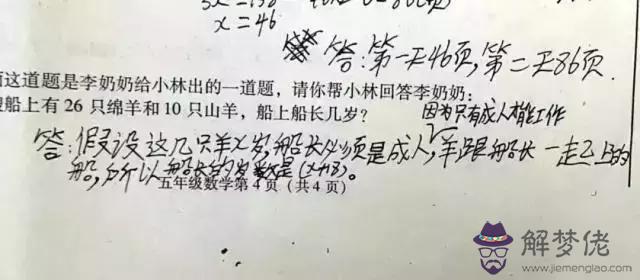 x=46
答:第一天46页,第二天86页.
这道题是李奶奶给小林出的一道题，请你帮小林回答李奶奶:
船上有 26 只绵羊和 10 只山羊，船上船长几岁?
因为只有成人才能工作
答:假设这几只羊x岁,船长必须是成人,羊跟船长一起上的
船,所以船长的岁数是(x+18)。
五年级数学第 4 页（共 4 页）
解梦佬
www.jiemenglao.com